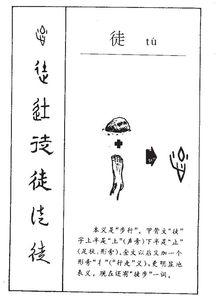 徒 tú
本义是“步行”。甲骨文“徒”
字上半是“土”(声旁)下半是“止”
(足状,形旁)。金文以后又加一个
形旁“彳”(“行走”义),更明显地
表义。现在还有“徒步”一词。